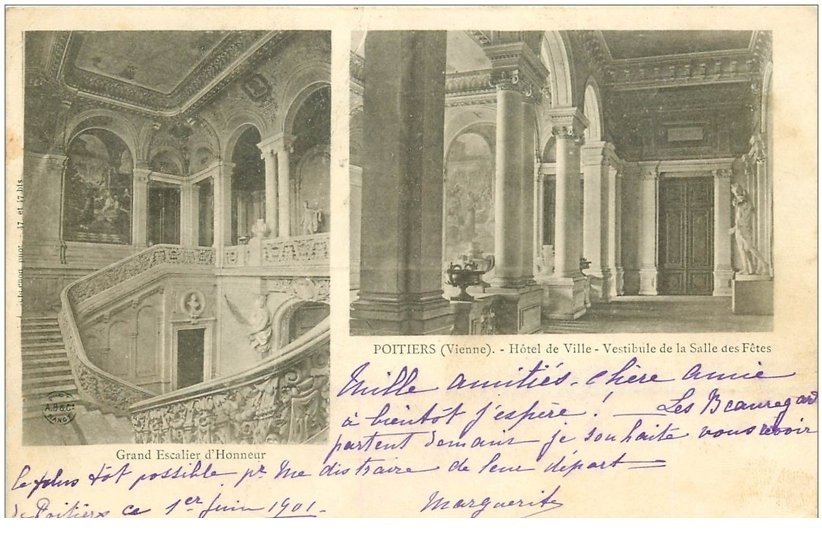 17 et 17 bis
A.B.&C.
NANCY
Grand Escalier d'Honneur
POITIERS (Vienne). - Hôtel de Ville - Vestibule de la Salle des Fêtes
Mille amitiés - chère amie
à bientôt j'espère ! - Les Beauregard
partent demain je souhaite vous revoir
le plus tôt possible pr me distraire de leur départ =
de Poitiers ce 1er juin 1901 -
Marguerite